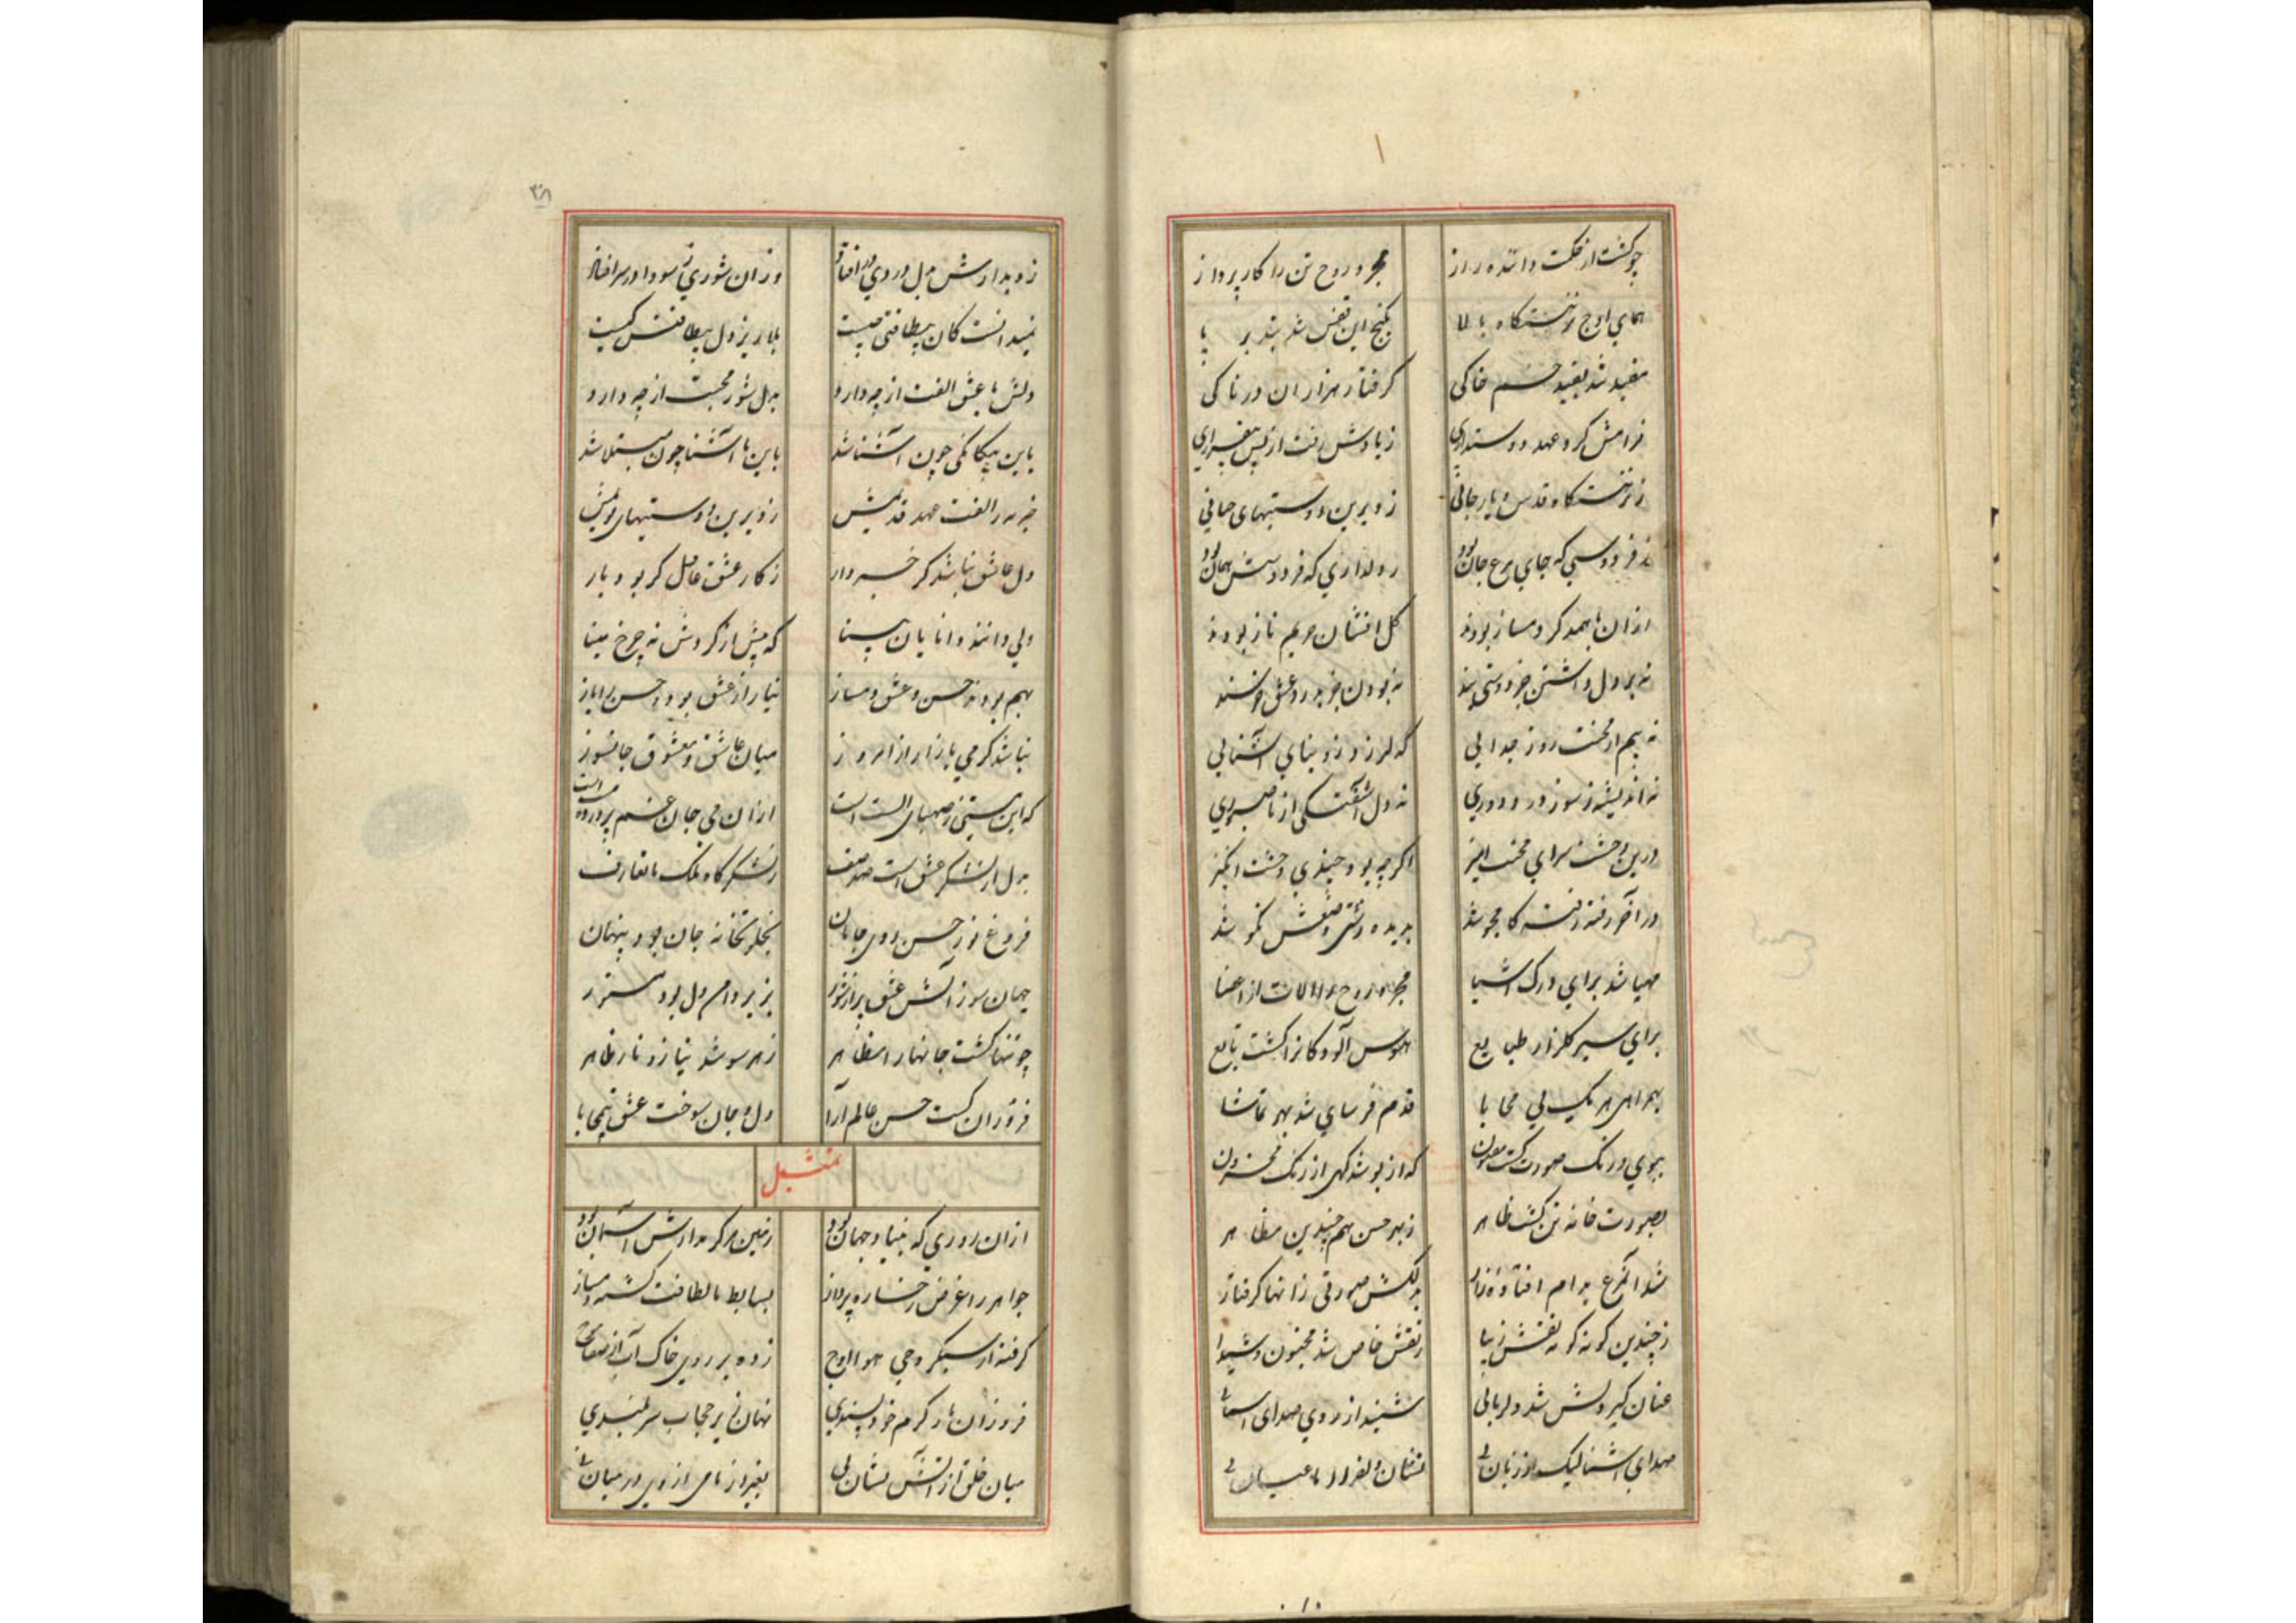 چو گشت از حکمت داننده راز مجرد روح تن را کارپرداز
همای اوج نزهتگاه بالا بکنج این قفس شد بند بر پا
مقید شد بقید جسم خاکی گرفتار هزاران دردناکی
فرامش کرد عهد دوستداری ز یادش رفت از پس بیقراری
ز نزهتگاه قدس و یار جانی ز دیرین دوستیهای جانی
ز فردوسی که جای مرغ جان بود
ازان با همدگر دمساز بودند گل افشان حریم ناز بودند
نه بر دل داشتن جز دوستی بند نه بودن جز بدرد عشق خرسند
نه بیم از محنت روز جدایی که لرزد زو بنای آشنایی
نه اندیشه ز سوز درد دوری نه دل آشفتگی از ناصبوری
درین وحشت سرای محنت انگیز اگرچه بود چندی وحشت انگیز
در آخر رفته رفته محو شد بدیده زشتی وضعش نکو شد
مهیا شد برای درک اشیا مجرد روح را آلات از اعضا
برای سیر گلزار طبایع هوس آلودگانرا گشت تابع
بهمراهی هر یک بی محابا قدم فرسای شد بهر تماشا
ببوی و رنگ صورت گشت مفتون که از بو شد گهی از رنگ محزون
بصورت خانه تن گشت ظاهر ز بهر حسن هم چندین مظاهر
شد آن مرغ بدام افتاده زار بدلکش صورتی زانها گرفتار
ز چندین گونه گونه نقش زیبا ز نقش خاص شد مجنون و شیدا
عنان گیر دلش شد دلربائی شنید از روی صدای آشنائی
صدای آشنا لیک از زبان نی نشان
۳۸
ز دیدارش بدل دردی در افتاد وزان شوری ز سودا در سر افتاد
نمیدانست کان بیطاقتی چیست بلاریز دل بیطاقتش کیست
دلش با عشق الفت از چه دارد بدل شور محبت از چه دارد
باین بیگانگی چون آشنا شد باین ناآشنا چون مبتلا شد
خبر نه ز الفت عهد قدیمش ز دیرین دوستیهای
دل عاشق نباشد گر خبردار ز کار عشق غافل گر بود یار
ولی دانند دانایان بینا که پیش از گردش نه چرخ مینا
بهم بودند حسن و عشق دمساز نیاز از عشق بود و حسن را ناز
نباشد گرمی بازار از امروز میان عاشق و معشوق جانسوز
که این مستی ز صهبای الست است ازان می جان غم پرورده مست است
بدل از لشکر عشق است صد صف ز لشکرگاه ملک
فروغ نور حسن روی جانان بخلوتخانه جان بود پنهان
جهان سوز آتش عشق پر از شور بزیر دام دل بود مستور
چو تنها گشت جانها را مظاهر ز هر سو شد نیاز و ناز ظاهر
فروزان گشت حسن عالم آرا دل و جان سوخت عشق بیمحابا
تمثیل
ازان روزی که بنیاد جهان بود زمین مرکز مدارش آسمان بود
جواهر را عرض رخساره پرداز بسایط با لطافت گشته دمساز
گرفته از سبکروحی هوا اوج زده بر روی خاک آب از صفا موج
فروزان نار گرم خودپسندی نهان زیر حجاب سربلندی
میان خلق از آتش نشان نی بغیر از نامی از وی در میان نی